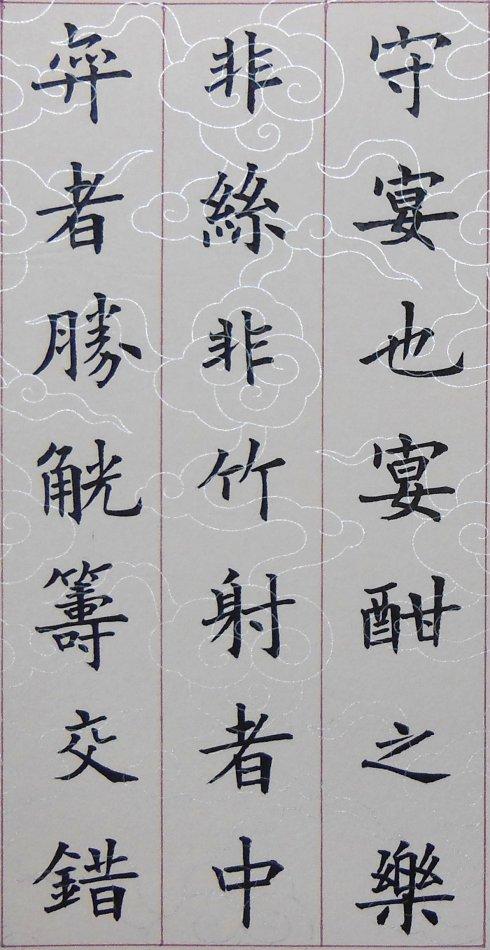 守宴也宴酣之樂
非絲非竹射者中
弈者勝觥籌交錯